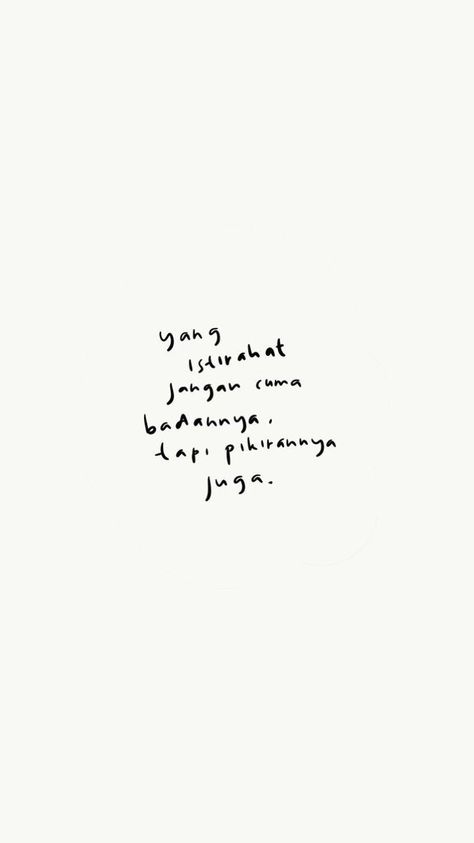 yang
istirahat
jangan cuma
badannya,
tapi pikirannya
juga.